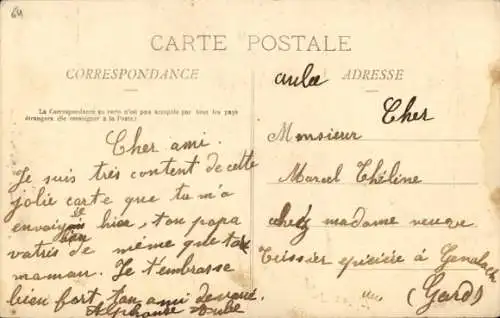 64
CARTE POSTALE
CORRESPONDANCE
La Correspondance au verso n'est pas acceptée par tous les pays
étrangers. (Se renseigner à la Poste.)
Cher ami.
Je suis très content de cette
jolie carte que tu m'a
hier, ton papa
de même que ta
maman. Je t'embrasse
bien fort, ton ami dévoué.
Alphonse Aube
aube ADRESSE
Cher
Monsieur
Marcel Théline
chez madame veuve
Tissier epicière à
(Gard)